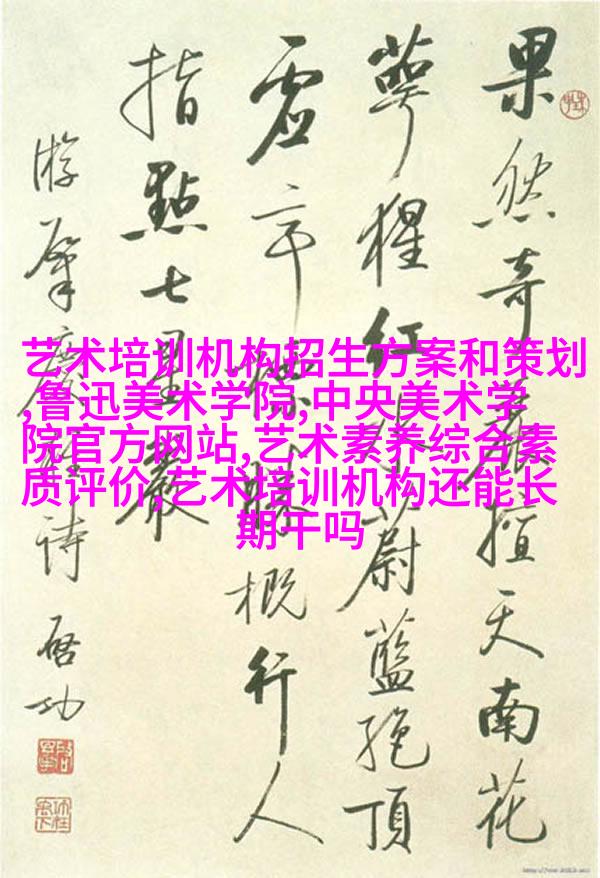 艺术培训机构招生方案和策划
,鲁迅美术学院,中央美术学
院官方网站,艺术素养综合素
质评价,艺术培训机构还能长
期干吗
果然奇麗擅天南花
萼猩紅水蔚藍絶頂
虚亭勝概行人
指點七星巖
游肇慶詩 啓功